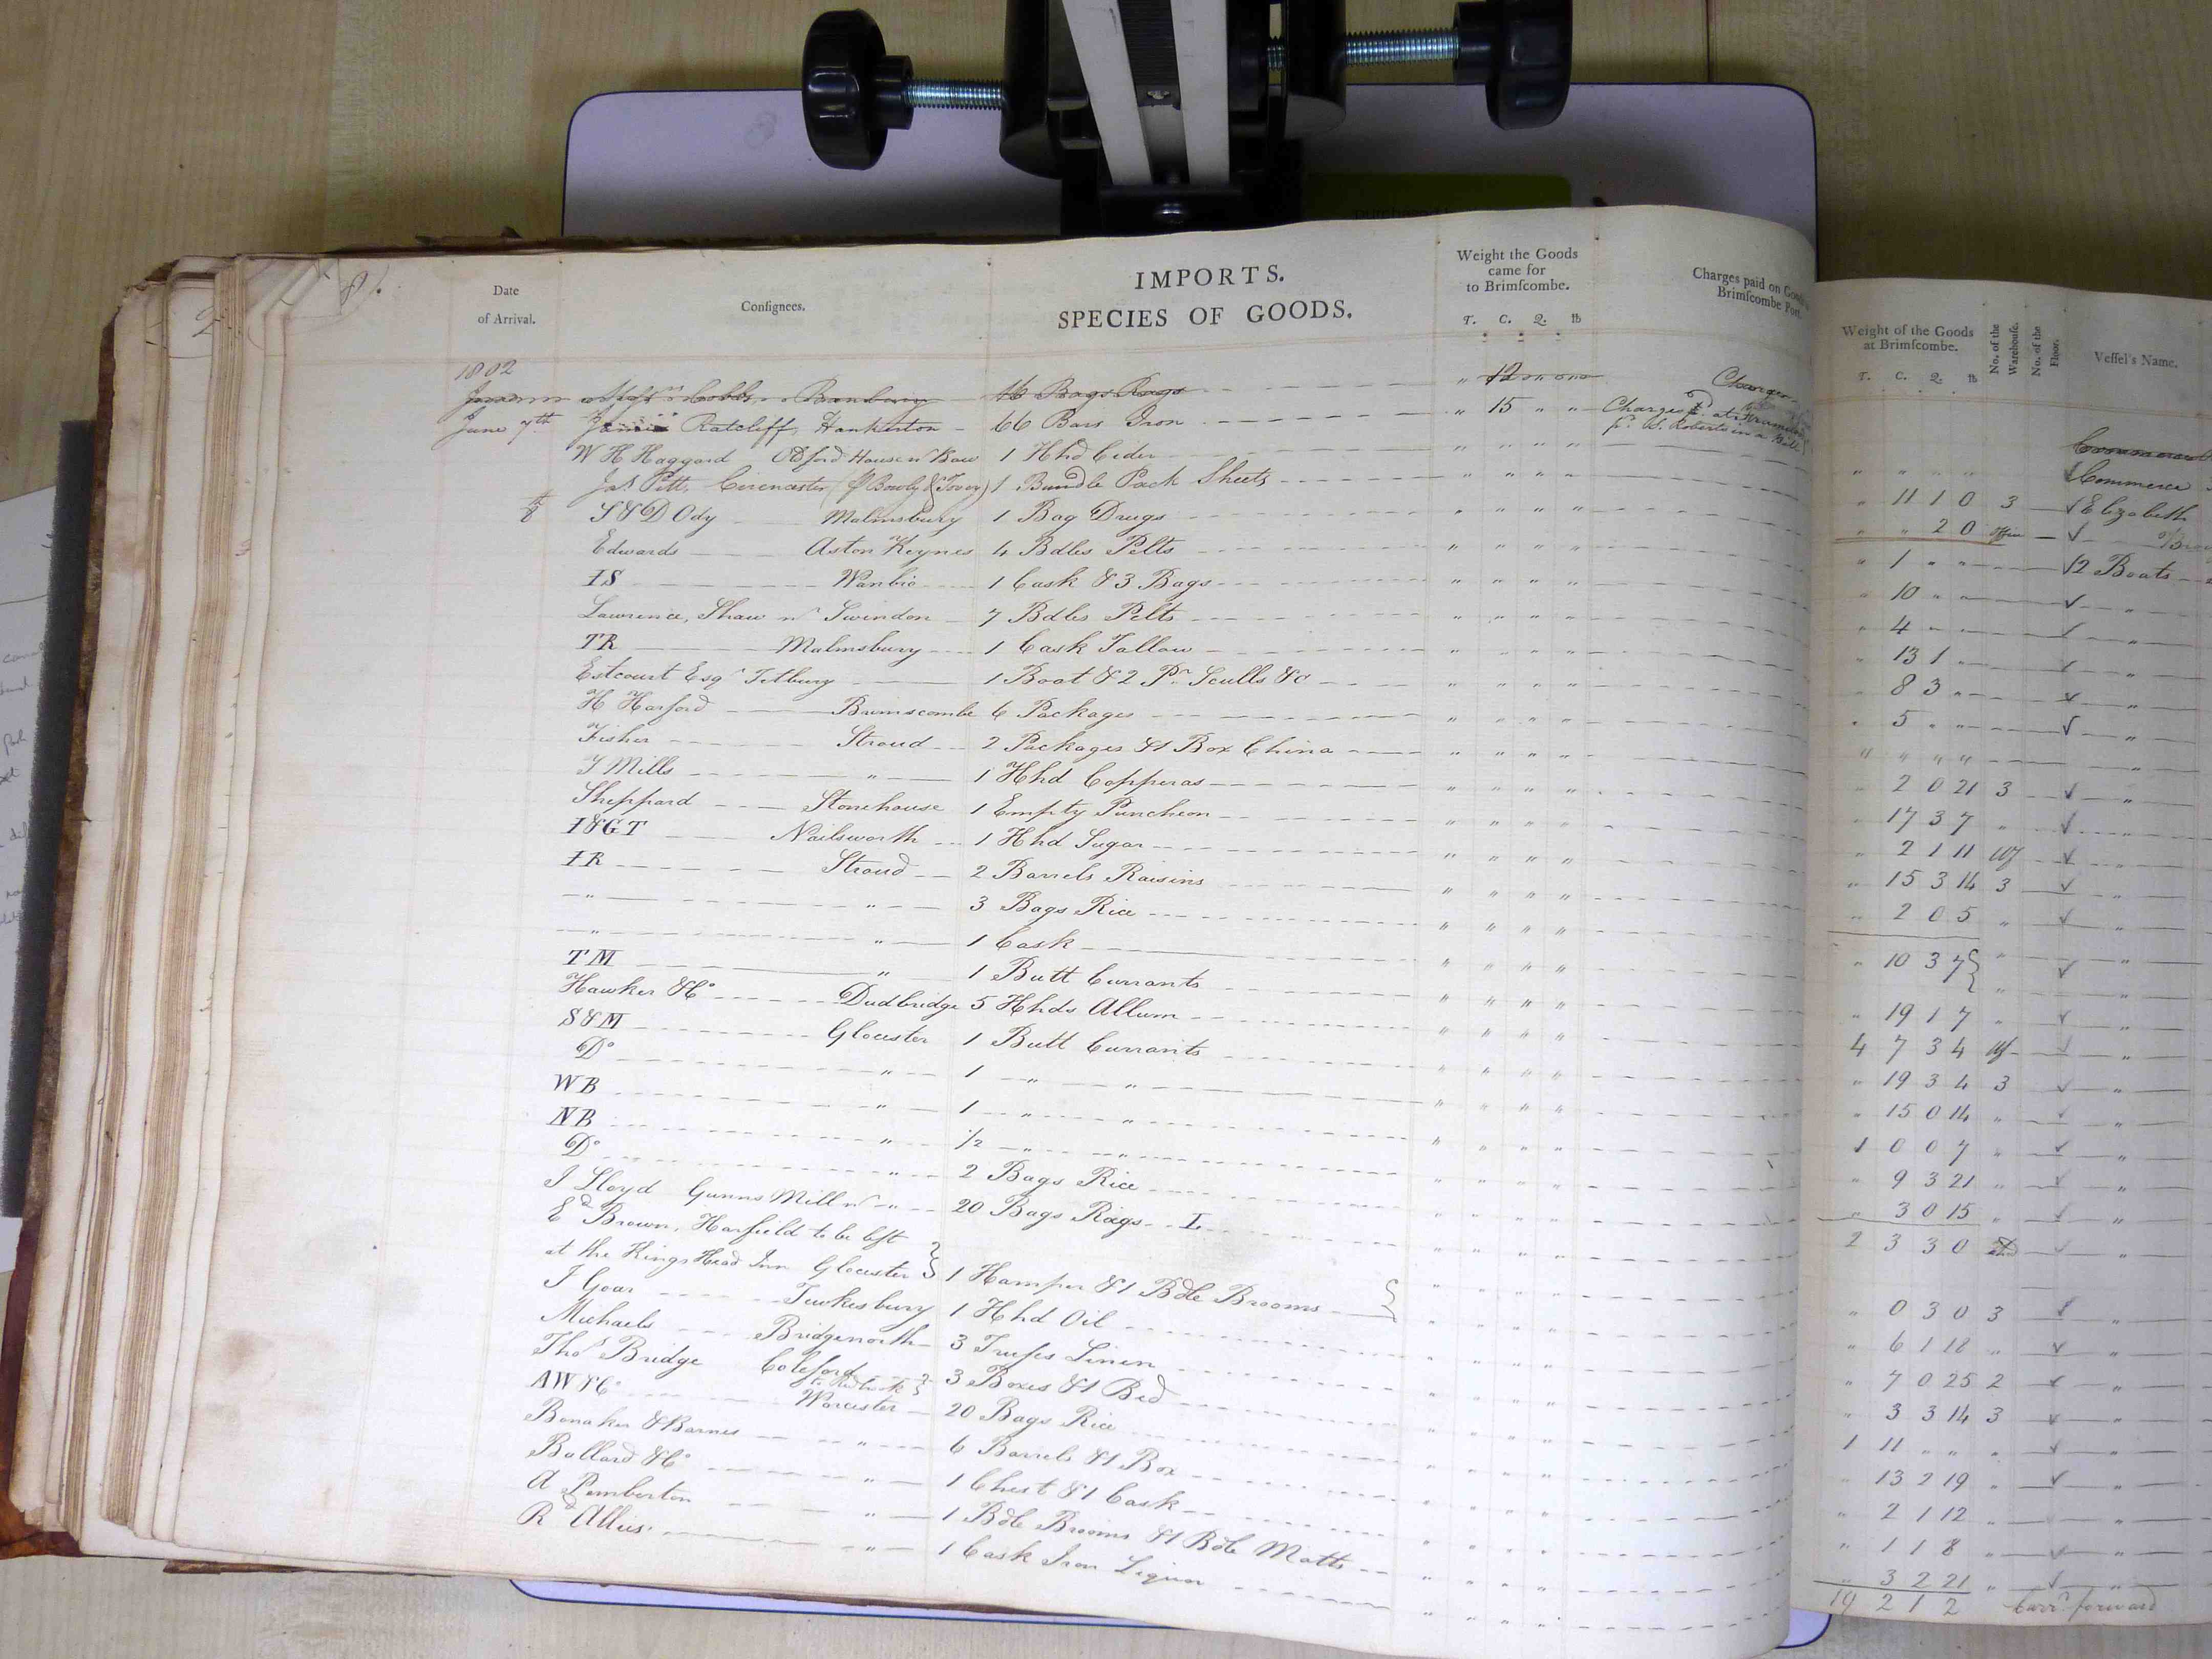 81.
Date
of Arrival.
Consignees.
IMPORTS.
SPECIES OF GOODS.
Weight the Goods
came for
to Brimscombe.
T. C. Q. lb
Charges paid on Goods
Brimscombe Port.
Weight of the Goods
at Brimscombe.
T. C. Q. lb
No. of the
Warehouse.
No. of the
Floor.
Vessel's Name.
1802
Cobb Banbury 16 Bags Rags " 12
June 7th Ratcliff, Hankerton - 66 Bars Iron " 15 " " Charges pd. at
pr. W. Roberts in a
W H Haggard Oldford House nr Bow 1 Hhd Cider " " " "
Jas. Pitt, Cirencester (pr Bowly & Tovey) 1 Bundle Pack Sheets " " " "
8th S & D Ody Malmsbury 1 Bag Drugs " " " "
Edwards Aston Keynes 4 Bdles Pelts " " " "
IS Wanbro 1 Cask & 3 Bags " " " "
Lawrence, Shaw nr Swindon 7 Bdles Pelts " " " "
TR Malmsbury 1 Cask Tallow " " " "
Estcourt Esqr Tetbury 1 Boat & 2 Pr Sculls &c " " " "
H Harford Brimscombe 6 Packages " " " "
Fisher Stroud 2 Packages & 1 Box China " " " "
T Mills " 1 Hhd Copperas " " " "
Sheppard Stonehouse 1 Empty Puncheon " " " "
I & GT Nailsworth 1 Hhd Sugar " " " "
IR Stroud 2 Barrels Raisins " " " "
" " 3 Bags Rice " " " "
" " 1 Cask " " " "
TM " 1 Butt Currants " " " "
Hawker & Co Dudbridge 5 Hhds Allum " " " "
S & M Glocester 1 Butt Currants " " " "
Do " 1 " " " " " "
WB " 1 " " " " " "
NB " 1/2 " " " " " "
Do " 2 Bags Rice " " " "
J Lloyd Gunns Mill nr " 20 Bags Rags I " " " "
Ed Brown, Harfield to be left
at the Kings Head Inn Glocester 1 Hamper & 1 Bdle Brooms " " " "
J Goar Tewkesbury 1 Hhd Oil " " " "
Michaels Bridgenorth 3 Trusses Linen " " " "
Thos Bridge Coleford 3 Boxes & 1 Bed " " " "
to Redbrook
AW & Co Worcester 20 Bags Rice " " " "
Bonaker & Barnes " 6 Barrels & 1 Box " " " "
Ballard & Co " 1 Chest & 1 Cask " " " "
A Pemberton " 1 Bdle Brooms & 1 Bdle Matts " " " "
Rd Allies " 1 Cask Iron Liquor " " " "
Commerce
" " " " Commerce
" 11 1 0 3 Elizabeth
" " 2 0 Office
" 1 " " 12 Boats
" 10 " " "
" 4 " " "
" 13 1 " "
" 8 3 " "
" 5 " " "
" " " " "
" 2 0 21 3 "
" 17 3 7 " "
" 2 1 11 Wf "
" 15 3 14 3 "
" 2 0 5 " "
" 10 3 7 " "
" 19 1 7 " "
4 7 3 4 Wf "
" 19 3 4 3 "
" 15 0 14 " "
1 0 0 7 " "
" 9 3 21 " "
" 3 0 15 " "
2 3 3 0 "
" 0 3 0 3 "
" 6 1 18 " "
" 7 0 25 2 "
" 3 3 14 3 "
1 11 " " " "
" 13 2 19 " "
" 2 1 12 " "
" 1 1 8 " "
" 3 2 21 " "
19 2 1 2 Carrd forward